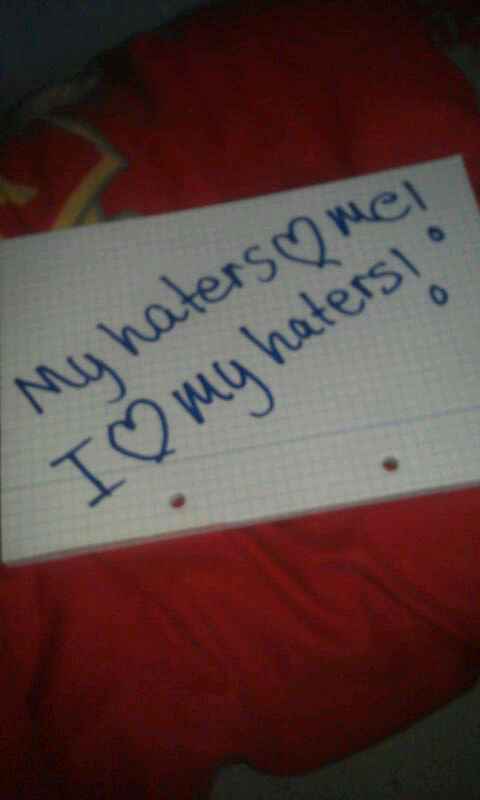 My haters♡me!
I♡my haters!